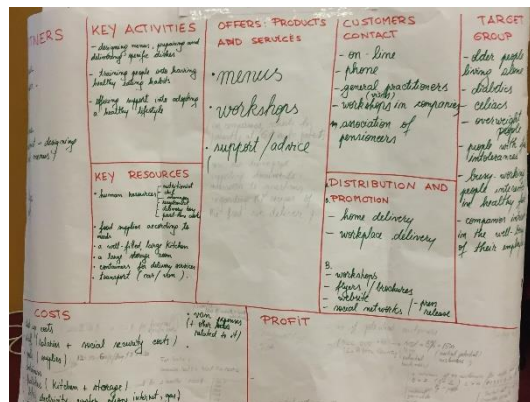 TNERS
- designing
menus /
KEY ACTIVITIES
- designing menus, preparing and
delivering specific dishes
- training people into having
healthy eating habits
- offering support into adopting
a healthy lifestyle
KEY RESOURCES
• human resources
nutritionist
chef
delivery boy
• food supplies according to
needs
- a well-fitted, large kitchen
- a large storage room
• containers for delivery services
• transport (car/van)
OFFERS: PRODUCTS
AND SERVICES
• menus
• workshops
• support/advice
CUSTOMERS
CONTACT
- on-line
- phone
- general practitioners
- workshops in companies
association of
pensioneers
DISTRIBUTION AND
PROMOTION
- home delivery
- workplace delivery
B.
- workshops
- flyers/brochures
- website
- social networks / - press
release
TARGET
GROUP
- older people
living alone
- diabetics
- celiacs
- overweight
people
- people with
intolerances
- busy working
people
in healthy
- companies
in the well-
of their
COSTS
costs
(salaries + social security costs)
(supplies)
(kitchen + storage)
electricity, water, internet, gas)
• van expenses
(+ other
related to it)
PROFIT